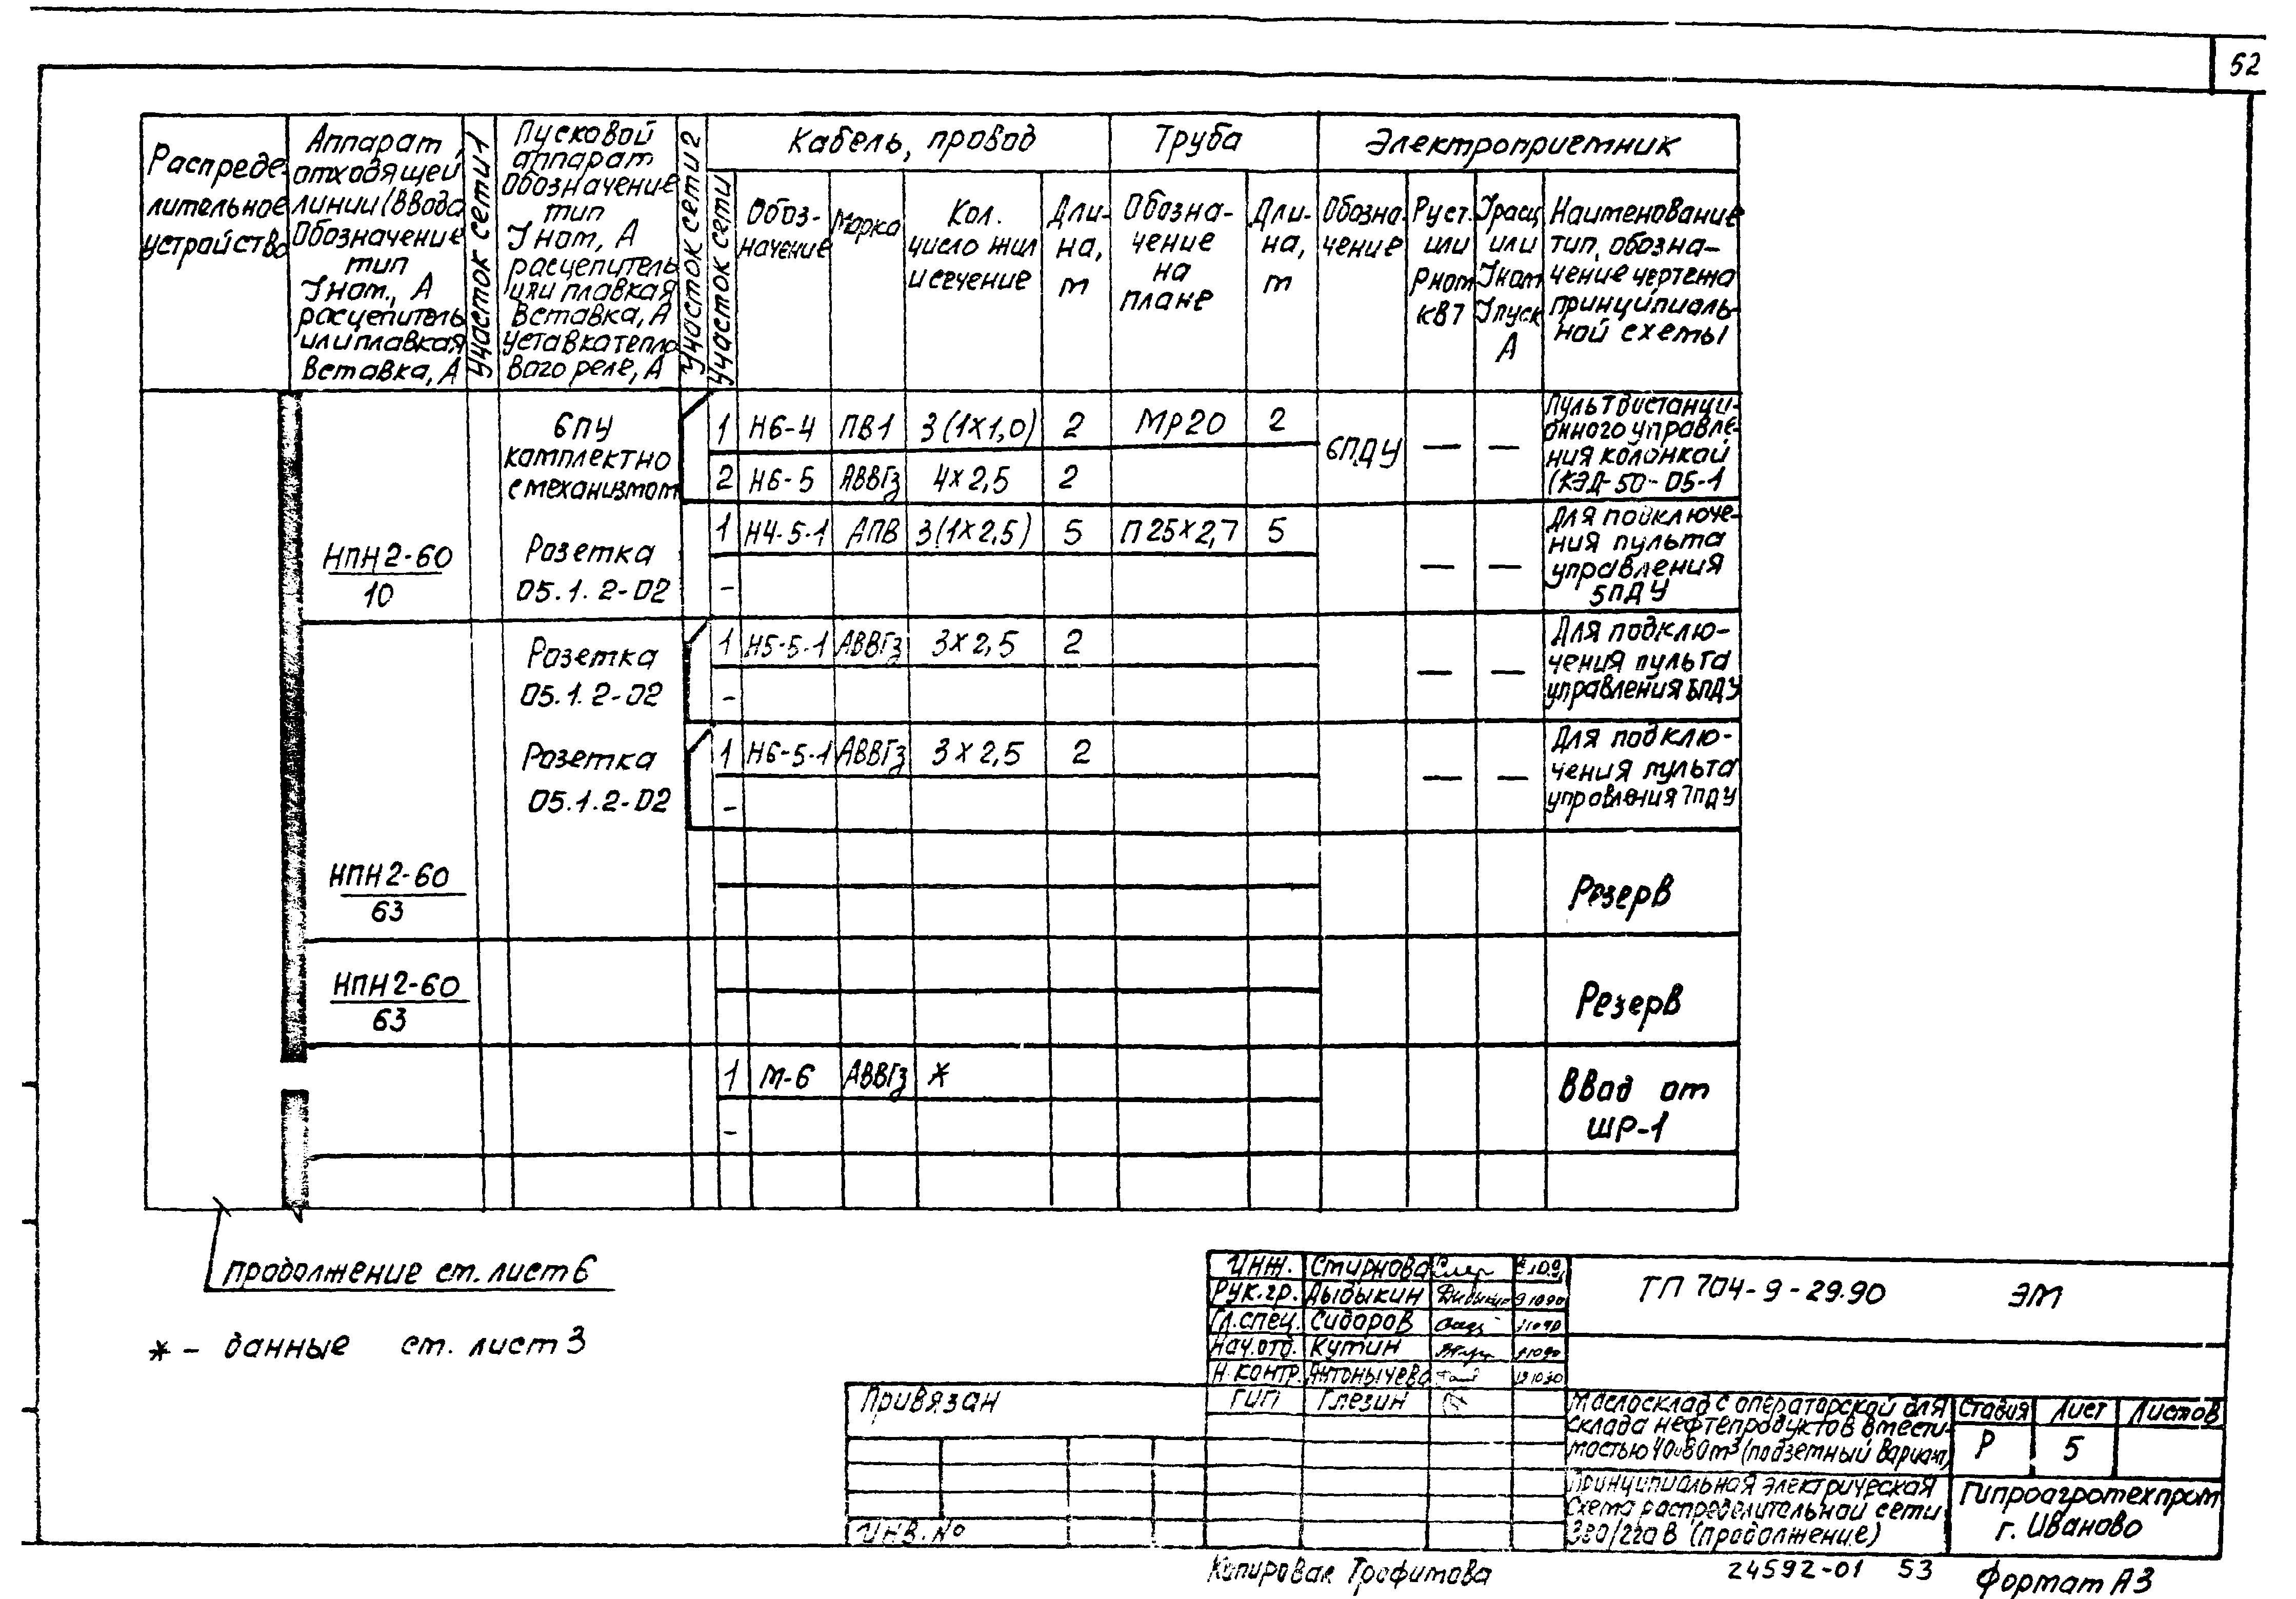 52
Распреде-
лительное
устройство
Аппарат
отходящей
линии (ввода
Обозначение
тип
Iном., А
расцепитель
или плавкая
вставка, А
Участок сети 1
Пусковой
аппарат
Обозначение
тип
Iном, А
расцепитель
или плавкая
вставка, А
уставка тепло
вого реле, А
Участок сети 2
Участок сети
Кабель, провод
Обоз-
начение
Марка
Кол.
число жил
и сечение
Дли-
на,
м
Труба
Обозна-
чение
на
плане
Дли-
на,
м
Электроприемник
Обозна-
чение
Руст.
или
Рном
кВт
Iрасц
или
Iном
Iпуск
А
Наименование
тип, обозна-
чение чертежа
принципиаль-
ной схемы
6ПУ
комплектно
с механизмом
1 Н6-4 ПВ1 3(1×1,0) 2 МР20 2
2 Н6-5 АВВГз 4×2,5 2
6ПДУ — —
Пульт дистанци-
онного управле-
ния колонкой
(КЭД-50-05-1
НПН2-60
10
Розетка
05.1.2-02
1 Н4-5-1 АПВ 3(1×2,5) 5 П25×2,7 5
-
— —
Для подключе-
ния пульта
управления
5ПДУ
Розетка
05.1.2-02
1 Н5-5-1 АВВГз 3×2,5 2
-
— —
Для подклю-
чения пульта
управления 6ПДУ
Розетка
05.1.2-02
1 Н6-5-1 АВВГз 3×2,5 2
-
— —
Для подклю-
чения пульта
управления 7ПДУ
НПН2-60
63
Резерв
НПН2-60
63
Резерв
1 М-6 АВВГз *
-
Ввод от
ШР-1
продолжение см. лист 6
* - данные см. лист 3
Инж. Смирнова
Рук.гр. Дыбыкин
Гл.спец. Сидоров
Нач.отд. Кутин
Н.контр. Антонычева
ГИП Глезин
ТП 704-9-29.90 ЭМ
Привязан
Инв.№
Маслосклад с операторской для
склада нефтепродуктов вмести-
мостью 40и80м³ (подземный вариант)
Стадия Лист Листов
Р 5
Принципиальная электрическая
схема распределительной сети
380/220 В (продолжение)
Гипроагротехпром
г. Иваново
Копировал Трофимова
24592-01 53
Формат А3